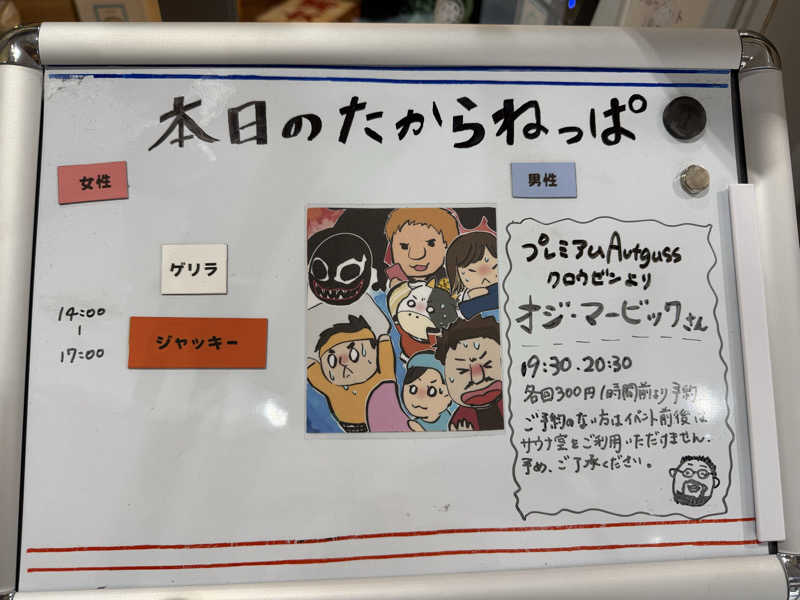 本日のたからねっぱ
女性
男性
ゲリラ
14:00
|
17:00
ジャッキー
プレミアムAufguss
クロウゼンより
オジ・マービックさん
19:30.20:30
各回300円 1時間前より予約
ご予約のない方はイベント前後は
サウナ室をご利用いただけません。
予め、ご了承ください。